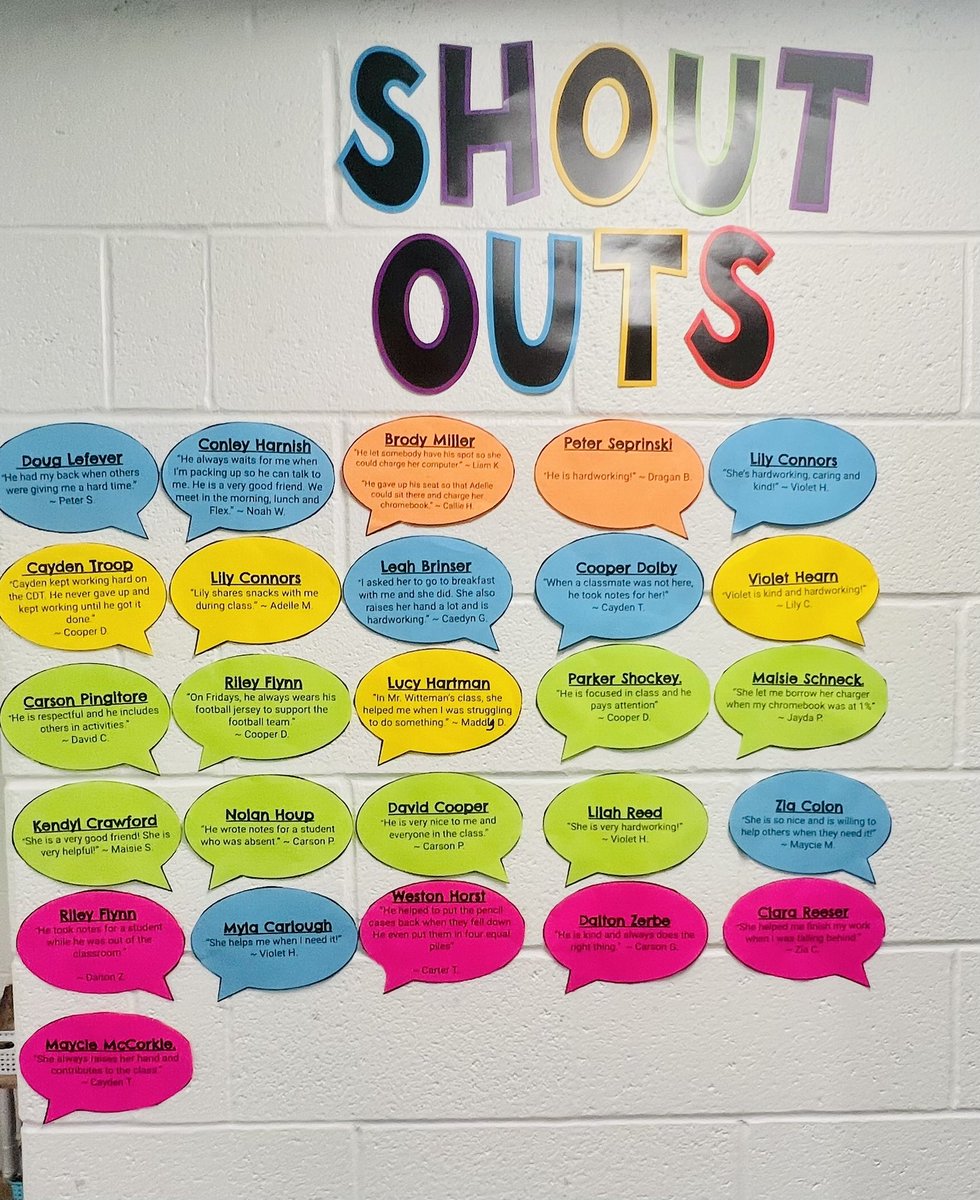 SHOUT
OUTS
Doug Lefever
"He had my back when others
were giving me a hard time."
~ Peter S.
Conley Harnish
"He always waits for me when
I'm packing up so he can talk to
me. He is a very good friend. We
meet in the morning, lunch and
Flex." ~ Noah W.
Brody Miller
"He let somebody have his spot so she
could charge her computer." ~ Liam K.
"He gave up his seat so that Adelle
could sit there and charge her
chromebook." ~ Callie H.
Peter Seprinski
"He is hardworking!" ~ Dragan B.
Lily Connors
"She's hardworking, caring and
kind!" ~ Violet H.
Cayden Troop
"Cayden kept working hard on
the CDT. He never gave up and
kept working until he got it
done."
~ Cooper D.
Lily Connors
"Lily shares snacks with me
during class." ~ Adelle M.
Leah Brinser
"I asked her to go to breakfast
with me and she did. She also
raises her hand a lot and is
hardworking." ~ Caedyn G.
Cooper Dolby
"When a classmate was not here,
he took notes for her!"
~ Cayden T.
Violet Hearn
"Violet is kind and hardworking!"
~ Lily C.
Carson Pingitore
"He is respectful and he includes
others in activities."
~ David C.
Riley Flynn
"On Fridays, he always wears his
football jersey to support the
football team."
~ Cooper D.
Lucy Hartman
"In Mr. Witteman's class, she
helped me when I was struggling
to do something." ~ Maddy D.
Parker Shockey.
"He is focused in class and he
pays attention"
~ Cooper D.
Maisie Schneck.
"She let me borrow her charger
when my chromebook was at 1%"
~ Jayda P.
Kendyl Crawford
"She is a very good friend! She is
very helpful!" ~ Maisie S.
Nolan Houp
"He wrote notes for a student
who was absent." ~ Carson P.
David Cooper
"He is very nice to me and
everyone in the class."
~ Carson P.
Lilah Reed
"She is very hardworking!"
~ Violet H.
Zia Colon
"She is so nice and is willing to
help others when they need it!"
~ Maycie M.
Riley Flynn
"He took notes for a student
while he was out of the
classroom."
~ Dalton Z.
Myla Carlough
"She helps me when I need it!"
~ Violet H.
Weston Horst
"He helped to put the pencil
cases back when they fell down.
He even put them in four equal
piles"
~ Carter T.
Dalton Zerbe
"He is kind and always does the
right thing." ~ Carson G.
Clara Reeser
"She helped me finish my work
when I was falling behind."
~ Zia C.
Maycie McCorkle.
"She always raises her hand and
contributes to the class."
~ Cayden T.